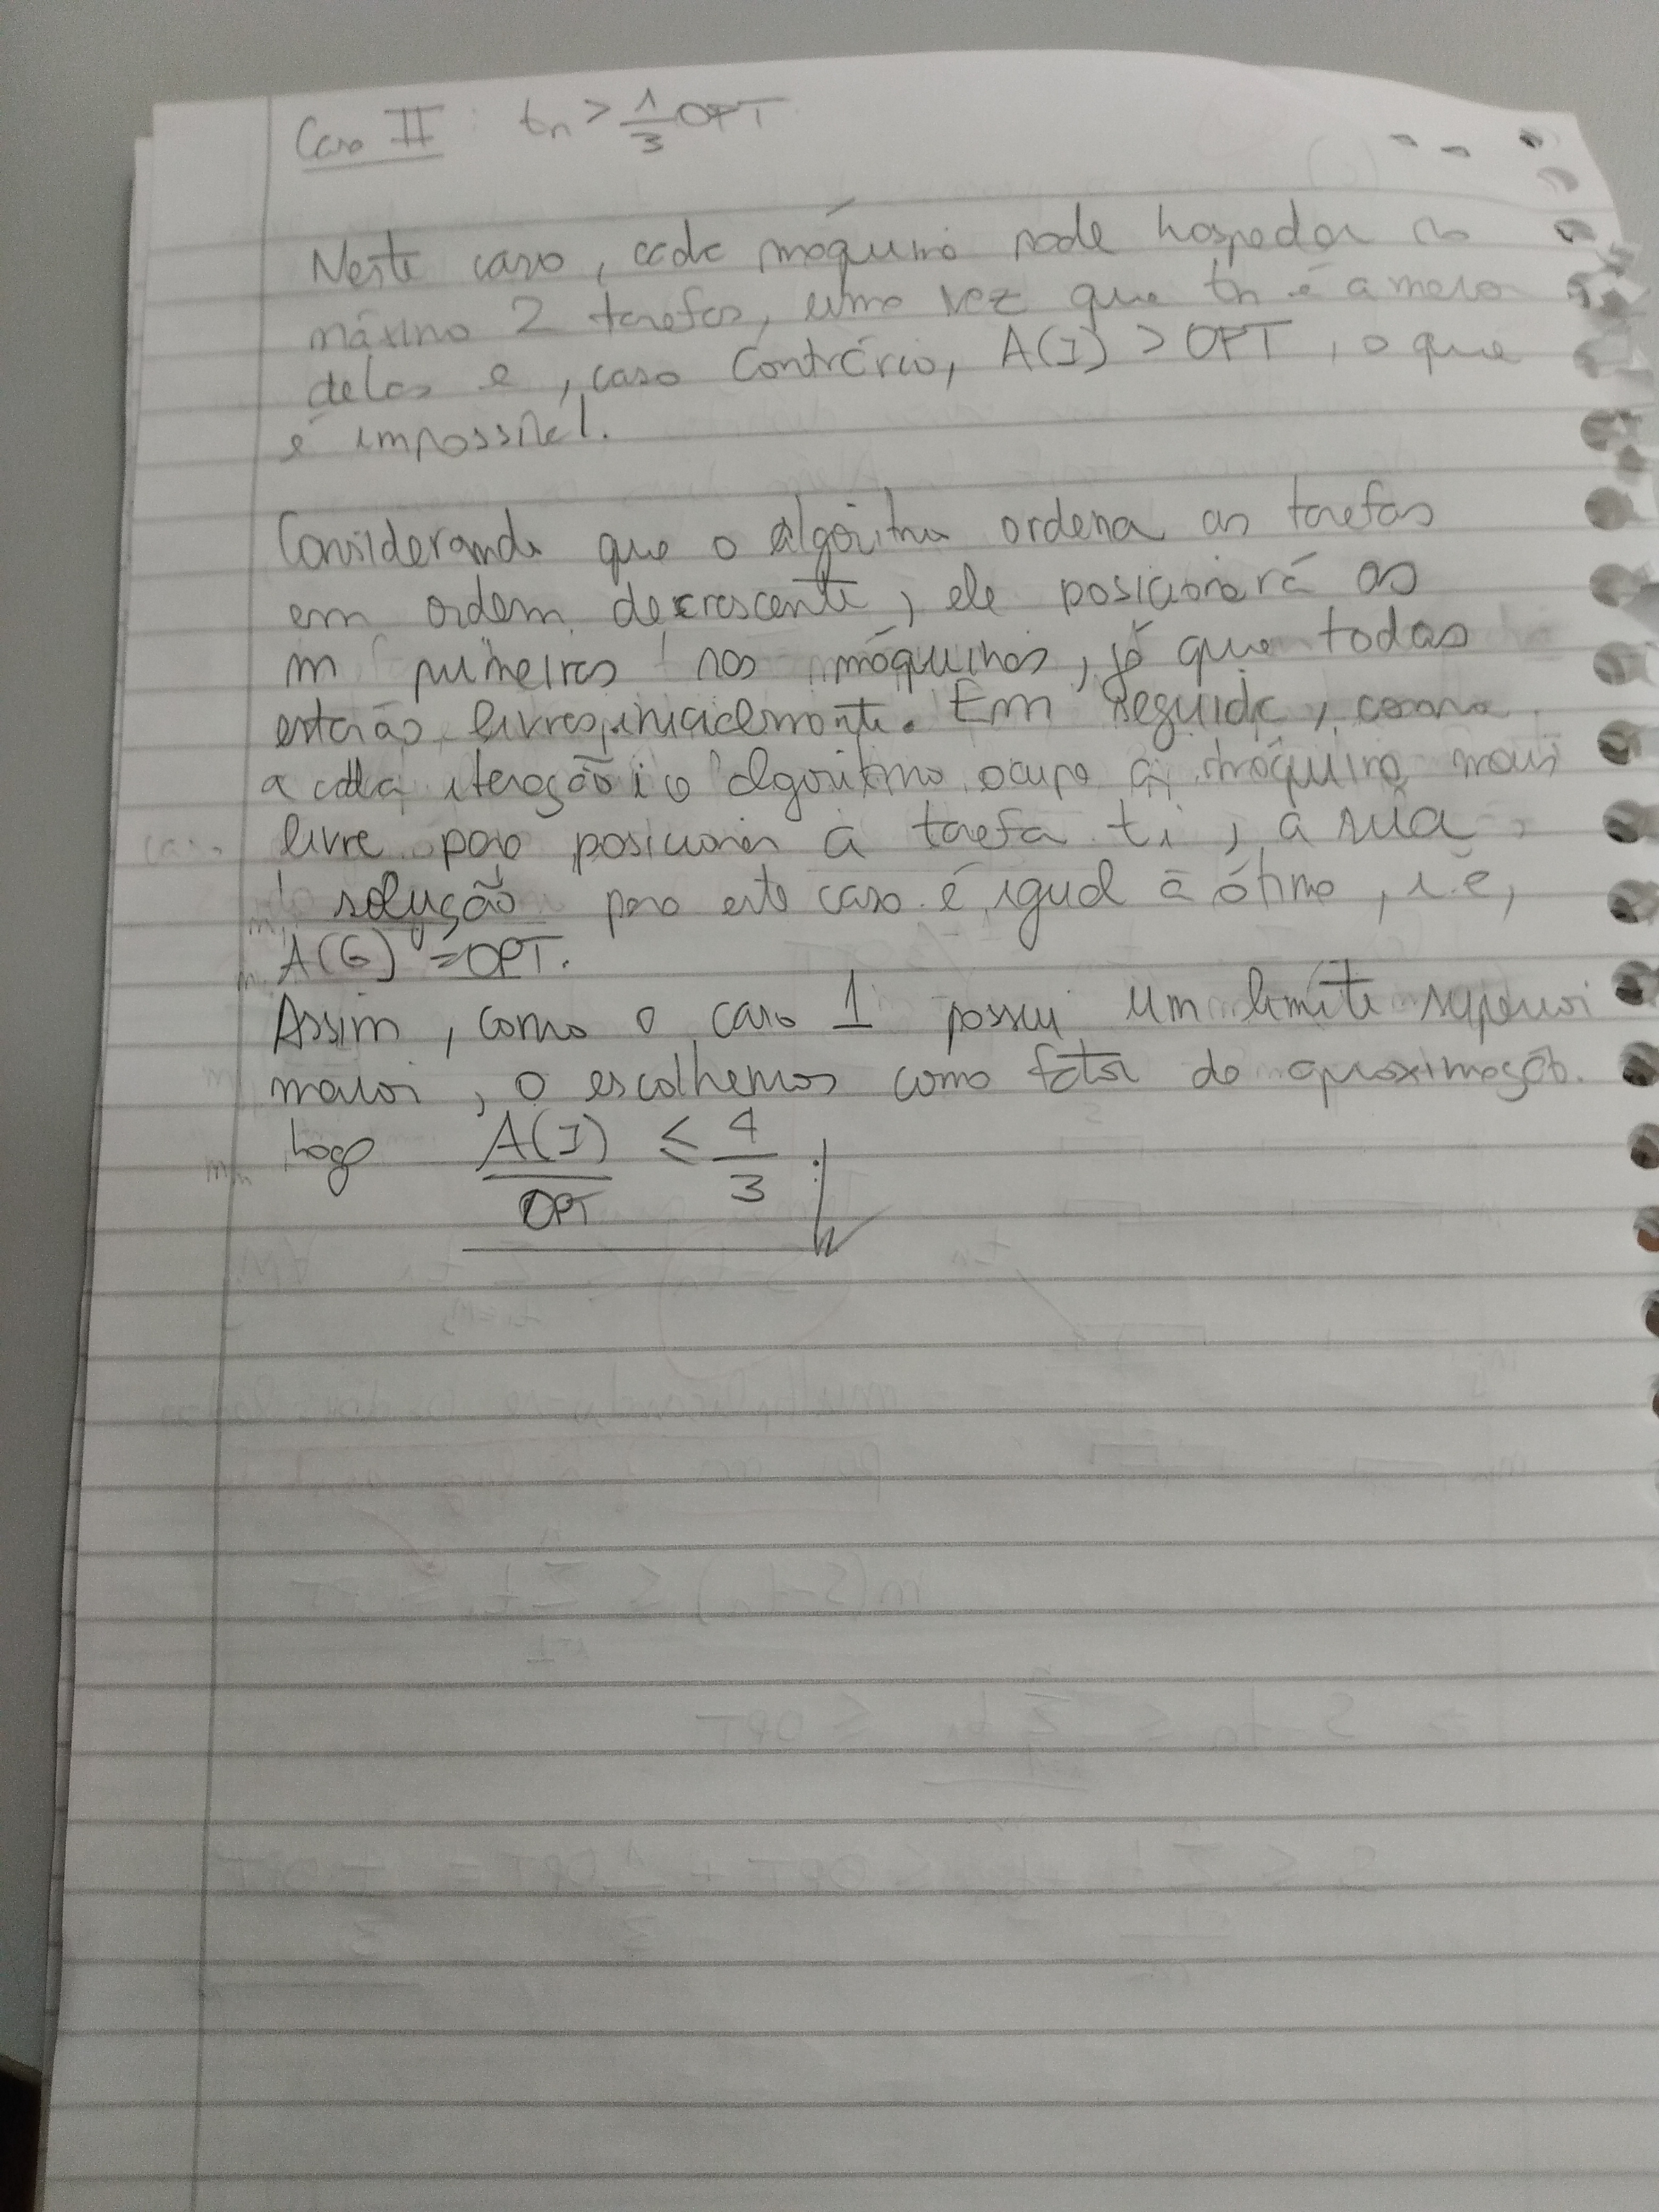 Caso II : tn > 1/3 OPT
Neste caso, cada máquina pode hospedar no
máximo 2 tarefas, uma vez que tn é a menor
delas e, caso contrário, A(I) > OPT, o que
é impossível.
Considerando que o algoritmo ordena as tarefas
em ordem decrescente, ele posicionará as
m primeiras nas máquinas, já que todas
estarão livres inicialmente. Em seguida, como
a cada iteração i o algoritmo ocupa a máquina mais
livre para posicionar a tarefa ti, a sua
solução para este caso é igual à ótima, i.e,
A(G) = OPT.
Assim, como o caso 1 possui um limite superior
maior, o escolhemos como fator de aproximação.
Logo A(I)/OPT ≤ 4/3